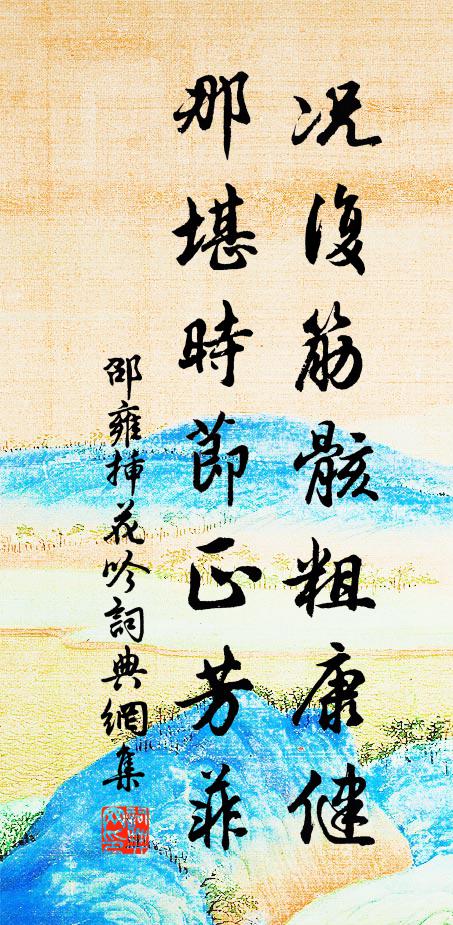 况復筋骸粗康健
那堪時節正芳菲
邵雍插花吟詞典網集